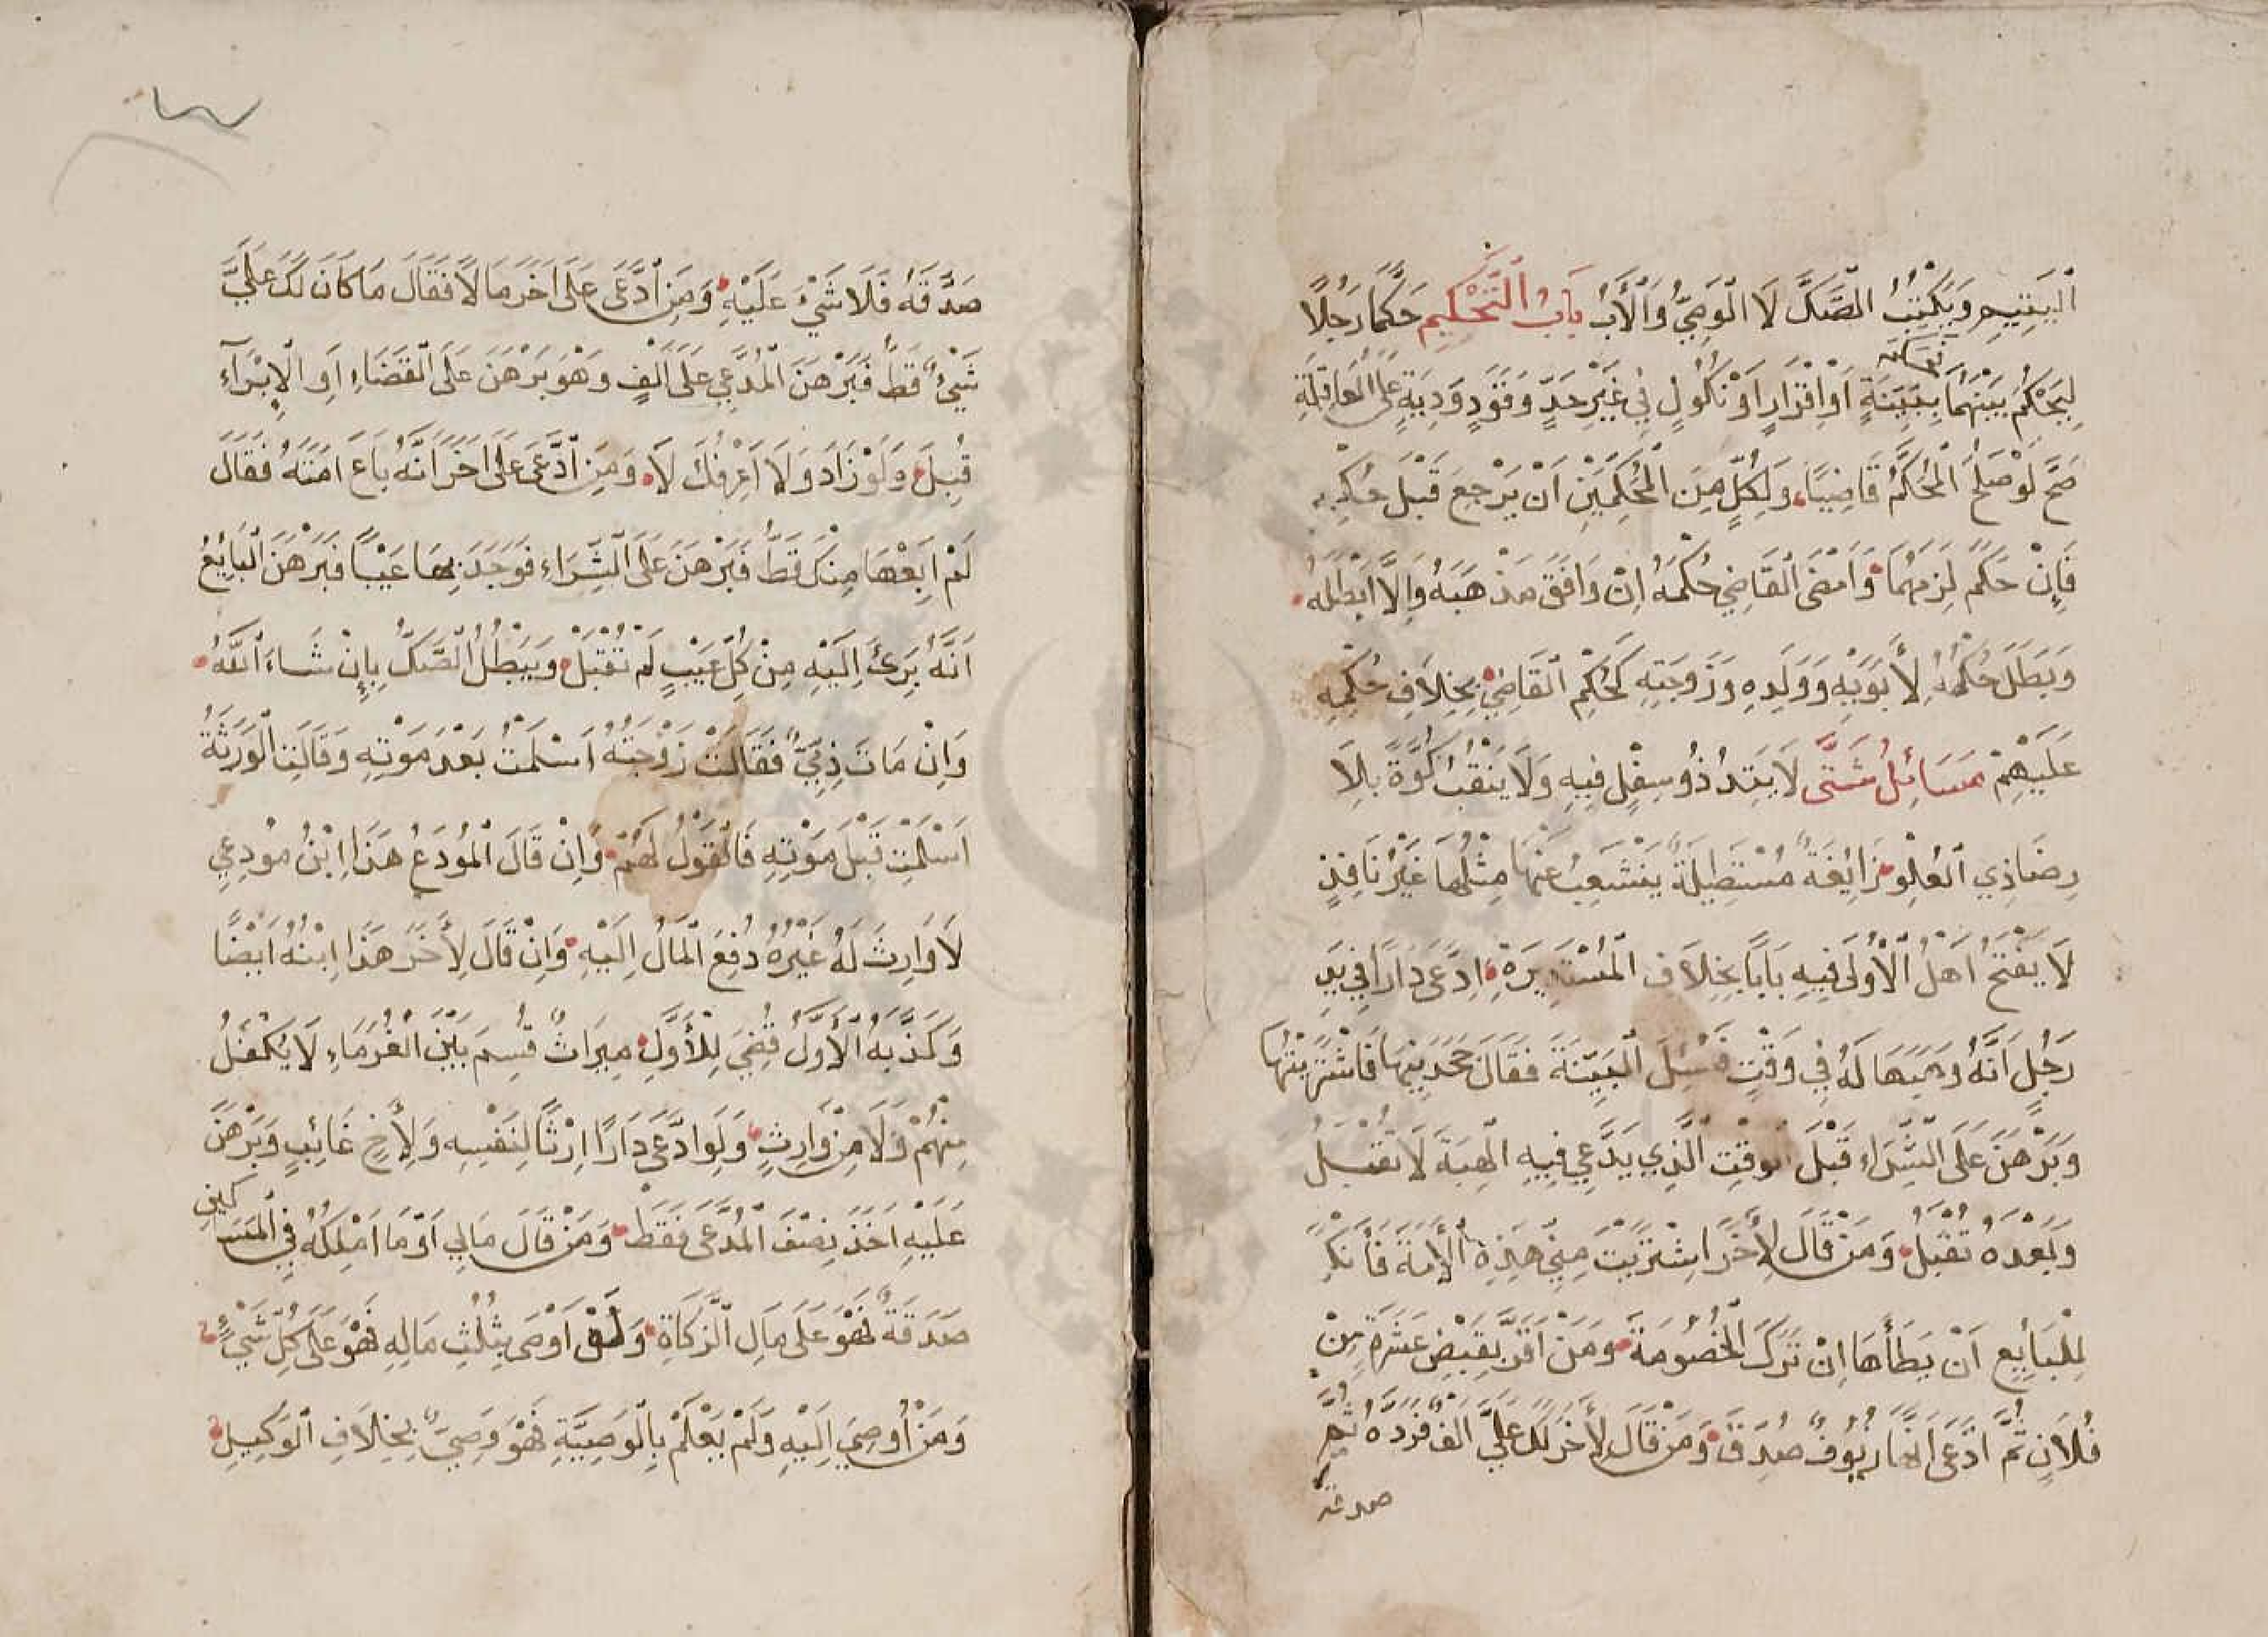 اَلْيَتِيمِ وَيَكْتُبُ الصَّكَّ لَا الْوَصِيُّ وَالْأَبُ بَابُ التَّحْكِيمِ حَكَّمَا رَجُلًا
لِيَحْكُمَ بَيْنَهُمَا بِبَيِّنَةٍ اَوْ اِقْرَارٍ اَوْ نُكُولٍ فِي غَيْرِ حَدٍّ وَقَوَدٍ وَدِيَةٍ عَلَى الْعَاقِلَةِ
صَحَّ لَوْ صَلُحَ الْمُحَكَّمُ قَاضِيًا وَلِكُلٍّ مِنَ الْمُحَكِّمَيْنِ اَنْ يَرْجِعَ قَبْلَ حُكْمِهِ
فَاِنْ حَكَمَ لَزِمَهُمَا وَاَمْضَى الْقَاضِي حُكْمَهُ اِنْ وَافَقَ مَذْهَبَهُ وَاِلَّا اَبْطَلَهُ
وَبَطَلَ حُكْمُهُ لِأَبَوَيْهِ وَوَلَدِهِ وَزَوْجَتِهِ كَحُكْمِ الْقَاضِي بِخِلَافِ حُكْمِهِ
عَلَيْهِمْ مَسَائِلُ شَتَّى لَا يَتِدُ ذُو سِفْلٍ فِيهِ وَلَا يَنْقُبُ كُوَّةً بِلَا
رِضَا ذِي الْعُلْوِ زَائِغَةٌ مُسْتَطِيلَةٌ يَنْشَعِبُ عَنْهَا مِثْلُهَا غَيْرُ نَافِذٍ
لَا يَفْتَحُ اَهْلُ الْأُولَى فِيهِ بَابًا بِخِلَافِ الْمُسْتَدِيرَةِ اِدَّعَى دَارًا فِي يَدِ
رَجُلٍ اَنَّهُ وَهَبَهَا لَهُ فِي وَقْتٍ فَسُئِلَ الْبَيِّنَةَ فَقَالَ جَحَدَنِيهَا فَاشْتَرَيْتُهَا
وَبَرْهَنَ عَلَى الشِّرَاءِ قَبْلَ الْوَقْتِ الَّذِي يَدَّعِي فِيهِ الْهِبَةَ لَا تُقْبَلُ
وَبَعْدَهُ تُقْبَلُ وَمَنْ قَالَ لِأَخَرَ اشْتَرَيْتَ مِنِّي هَذِهِ الْأَمَةَ فَأَنْكَرَ
لِلْبَائِعِ اَنْ يَطَأَهَا اِنْ تَرَكَ الْخُصُومَةَ وَمَنْ اَقَرَّ بِقَبْضِ عَشَرَةٍ مِنْ
فُلَانٍ ثُمَّ ادَّعَى اَنَّهَا زُيُوفٌ صُدِّقَ وَمَنْ قَالَ لِأَخَرَ لَكَ عَلَيَّ اَلْفٌ فَرَدَّهُ ثُمَّ
صدقه
صَدَّقَهُ فَلَا شَيْءَ عَلَيْهِ وَمَنِ ادَّعَى عَلَى اَخَرَ مَالًا فَقَالَ مَا كَانَ لَكَ عَلَيَّ
شَيْءٌ قَطُّ فَبَرْهَنَ الْمُدَّعِي عَلَى اَلْفٍ وَهُوَ بَرْهَنَ عَلَى الْقَضَاءِ اَوِ الْاِبْرَآءِ
قُبِلَ وَلَوْ زَادَ وَلَا اَعْرِفُكَ لَا وَمَنِ ادَّعَى عَلَى اَخَرَ اَنَّهُ بَاعَ اَمَتَهُ فَقَالَ
لَمْ اَبِعْهَا مِنْكَ قَطُّ فَبَرْهَنَ عَلَى الشِّرَاءِ فَوَجَدَ بِهَا عَيْبًا فَبَرْهَنَ الْبَائِعُ
اَنَّهُ بَرِئَ اِلَيْهِ مِنْ كُلِّ عَيْبٍ لَمْ تُقْبَلْ وَيَبْطُلُ الصَّكُّ بِإِنْ شَاءَ اللَّهُ
وَاِنْ مَاتَ ذِمِّيٌّ فَقَالَتْ زَوْجَتُهُ اَسْلَمْتُ بَعْدَ مَوْتِهِ وَقَالَتِ الْوَرَثَةُ
اَسْلَمْتِ قَبْلَ مَوْتِهِ فَالْقَوْلُ لَهُمْ وَاِنْ قَالَ الْمُودَعُ هَذَا ابْنُ مُودِعِي
لَا وَارِثَ لَهُ غَيْرُهُ دُفِعَ الْمَالُ اِلَيْهِ وَاِنْ قَالَ لِأَخَرَ هَذَا اِبْنُهُ اَيْضًا
وَكَذَّبَهُ الْأَوَّلُ قُضِيَ لِلْأَوَّلِ مِيرَاثٌ قُسِمَ بَيْنَ الْغُرَمَاءِ لَا يُكْفَلُ
مِنْهُمْ وَلَا مِنْ وَارِثٍ وَلَوِ ادَّعَى دَارًا اِرْثًا لِنَفْسِهِ وَلِأَخٍ غَائِبٍ وَبَرْهَنَ
عَلَيْهِ اَخَذَ نِصْفَ الْمُدَّعَى فَقَطْ وَمَنْ قَالَ مَالِي اَوْ مَا اَمْلِكُهُ فِي الْمَسَاكِينِ
صَدَقَةٌ فَهُوَ عَلَى مَالِ الزَّكَاةِ وَلَوْ اَوْصَى بِثُلُثِ مَالِهِ فَهُوَ عَلَى كُلِّ شَيْءٍ
وَمَنْ أُوصِيَ اِلَيْهِ وَلَمْ يَعْلَمْ بِالْوَصِيَّةِ فَهُوَ وَصِيٌّ بِخِلَافِ الْوَكِيلِ